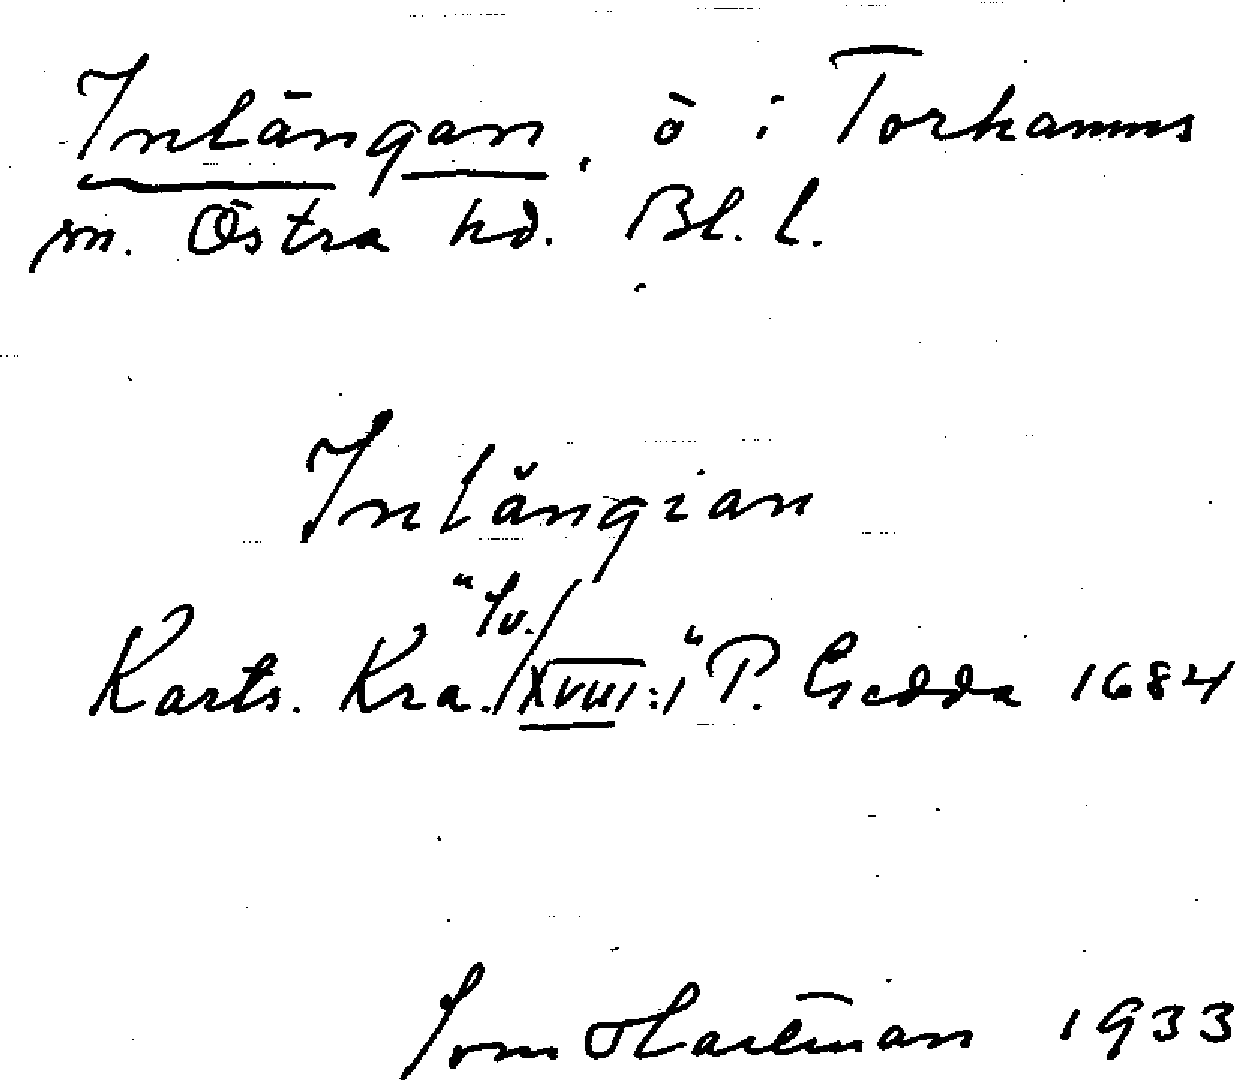 Inlängan, ö i Torhamns
sn. Östra hd. Bl. l.
Inlångian
"Sv./
Karts. Kra./XVIII:1" P. Gedda 1684
Hartman 1933